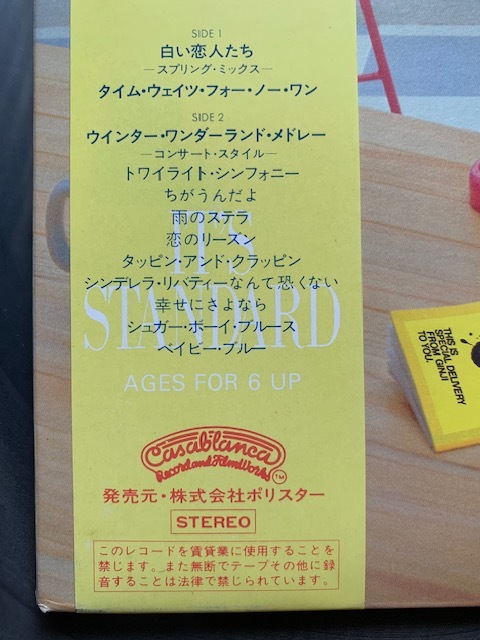 SIDE 1
白い恋人たち
—スプリング・ミックス—
タイム・ウェイツ・フォー・ノー・ワン
SIDE 2
ウインター・ワンダーランド・メドレー
—コンサート・スタイル—
トワイライト・シンフォニー
ちがうんだよ
雨のステラ
恋のリーズン
タッピン・アンド・クラッピン
シンデレラ・リバティーなんて恐くない
幸せにさよなら
シュガー・ボーイ・ブルース
ベイビー・ブルー
IT'S
STANDARD
AGES FOR 6 UP
Casablanca
Record and FilmWorks
TM
発売元・株式会社ポリスター
STEREO
このレコードを賃貸業に使用することを
禁じます。また無断でテープその他に録
音することは法律で禁じられています。
THIS IS
SPECIAL DELIVERY
FROM GINJI
TO YOU.